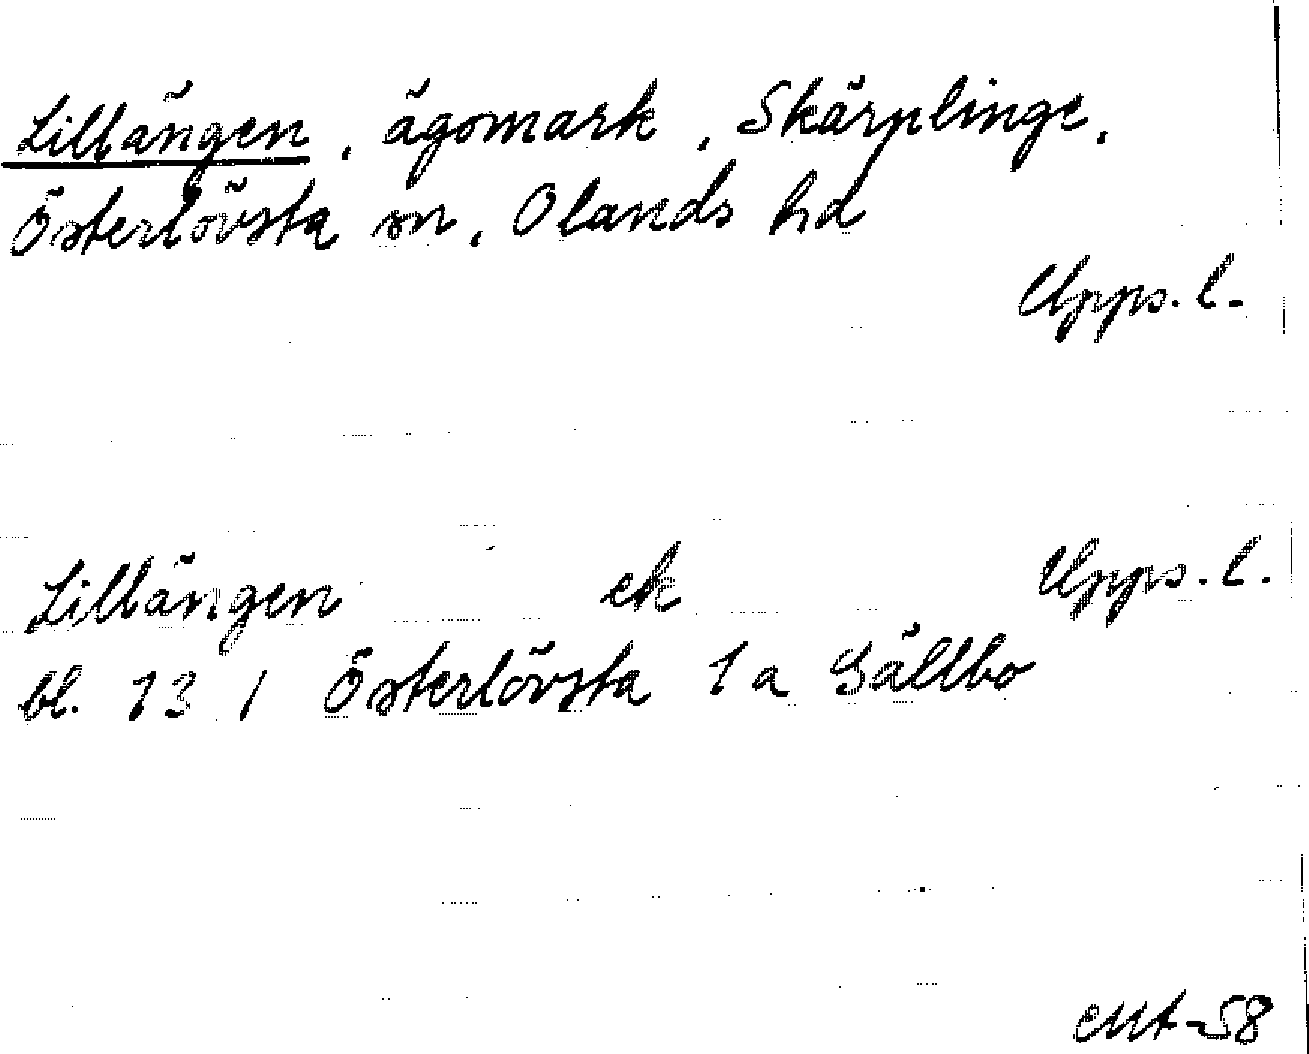 Lillängen, ägomark, Skärplinge,
Österlövsta sn, Olands hd
Upps. l.
Lillängen ek Upps. l.
bl. 13 I Österlövsta 1a Sällbo
EMt-58